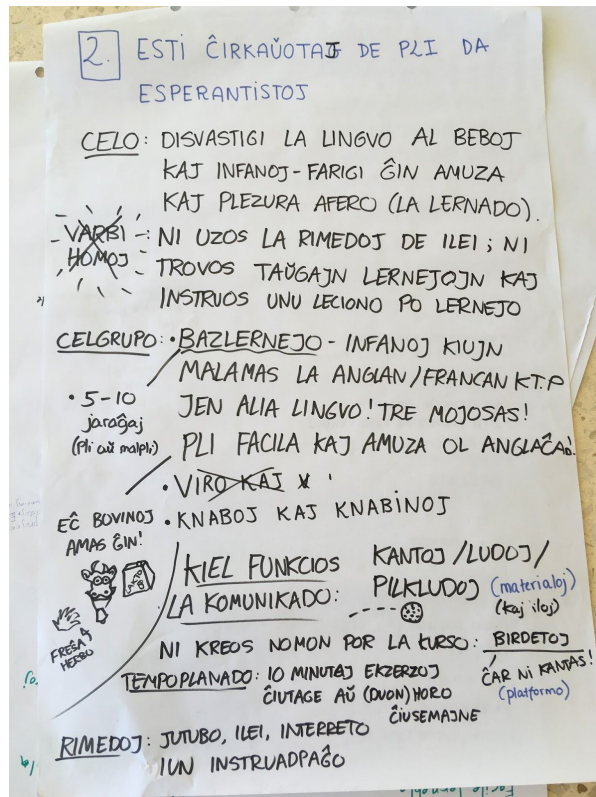 2. ESTI ĈIRKAŬOTAJ DE PLI DA
ESPERANTISTOJ
CELO: DISVASTIGI LA LINGVO AL BEBOJ
KAJ INFANOJ - FARIGI ĜIN AMUZA
KAJ PLEZURA AFERO (LA LERNADO).
VARBI
HOMOJ
: NI UZOS LA RIMEDOJ DE ILEI; NI
TROVOS TAŬGAJN LERNEJOJN KAJ
INSTRUOS UNU LECIONO PO LERNEJO
CELGRUPO: • BAZLERNEJO - INFANOJ KIUJN
MALAMAS LA ANGLAN/FRANCAN K.T.P
JEN ALIA LINGVO! TRE MOJOSAS!
PLI FACILA KAJ AMUZA OL ANGLAĈAĴ!
• 5-10
jaraĝaj
(Pli aŭ malpli)
• VIRO KAJ
• KNABOJ KAJ KNABINOJ
EĈ BOVINOJ
AMAS ĜIN!
LAKTO
FREŜA
HERBO
KIEL FUNKCIOS
LA KOMUNIKADO:
KANTOJ/LUDOJ/
PILKLUDOJ (materialoj)
(kaj iloj)
NI KREOS NOMON POR LA KURSO: BIRDETOJ
ĈAR NI KANTAS!
(platformo)
TEMPOPLANADO: 10 MINUTAJ EKZERZOJ
ĈIUTAGE AŬ (DUON)HORO
ĈIUSEMAJNE
RIMEDOJ: JUTUBO, ILEI, INTERRETO
IUN INSTRUADPAĜO